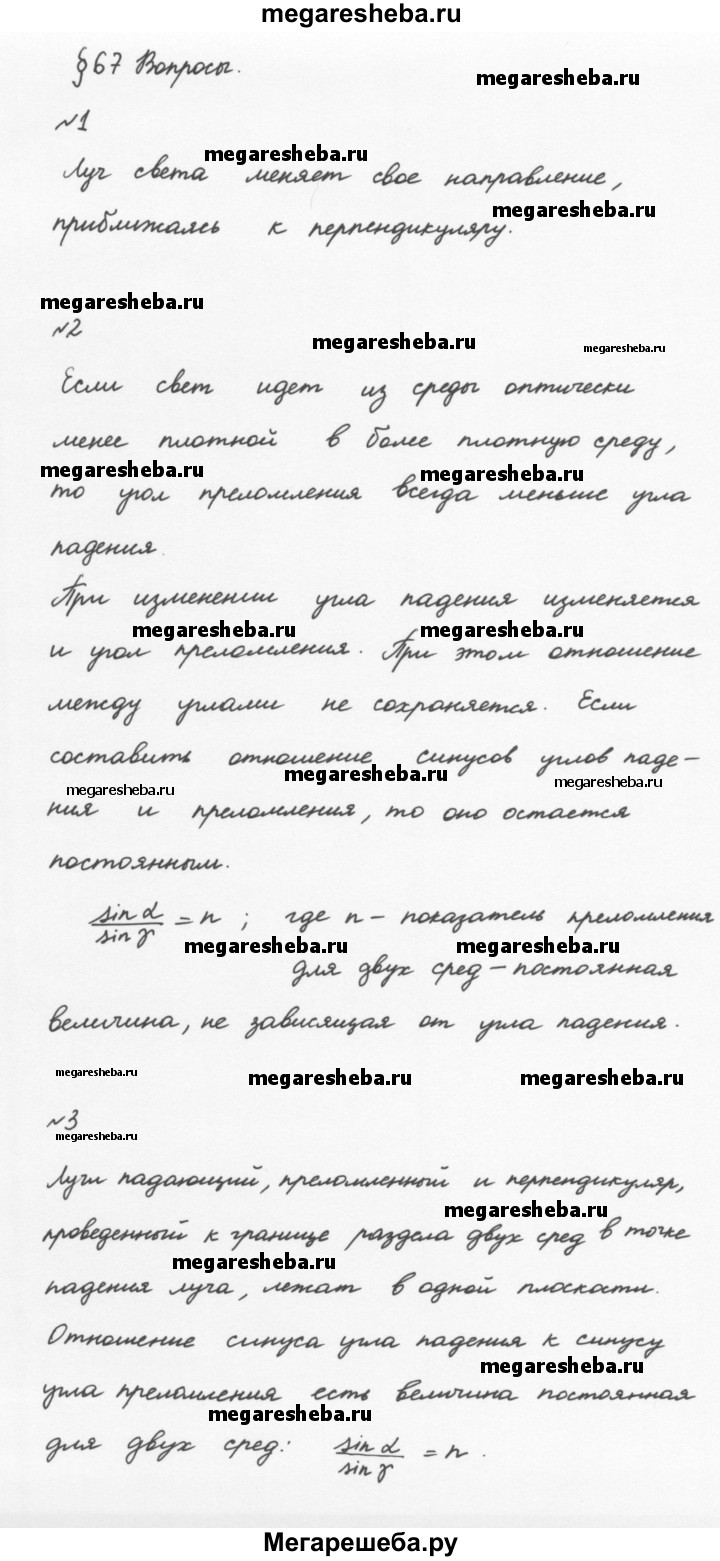 megaresheba.ru
§ 67 Вопросы.
megaresheba.ru
№1
megaresheba.ru
Луч света меняет свое направление,
megaresheba.ru
приближаясь к перпендикуляру.
megaresheba.ru
№2
megaresheba.ru
megaresheba.ru
Если свет идет из среды оптически
менее плотной в более плотную среду,
megaresheba.ru
megaresheba.ru
то угол преломления всегда меньше угла
падения.
При изменении угла падения изменяется
megaresheba.ru
megaresheba.ru
и угол преломления. При этом отношение
между углами не сохраняется. Если
составить отношение синусов углов паде-
megaresheba.ru
megaresheba.ru
megaresheba.ru
ния и преломления, то оно остается
постоянным.
sin α / sin γ = n ; где n - показатель преломления
megaresheba.ru
megaresheba.ru
для двух сред - постоянная
величина, не зависящая от угла падения.
megaresheba.ru
megaresheba.ru
megaresheba.ru
№3
megaresheba.ru
Лучи падающий, преломленный и перпендикуляр,
megaresheba.ru
проведенный к границе раздела двух сред в точке
megaresheba.ru
падения луча, лежат в одной плоскости.
Отношение синуса угла падения к синусу
megaresheba.ru
угла преломления есть величина постоянная
megaresheba.ru
для двух сред: sin α / sin γ = n .
Мегарешеба.ру